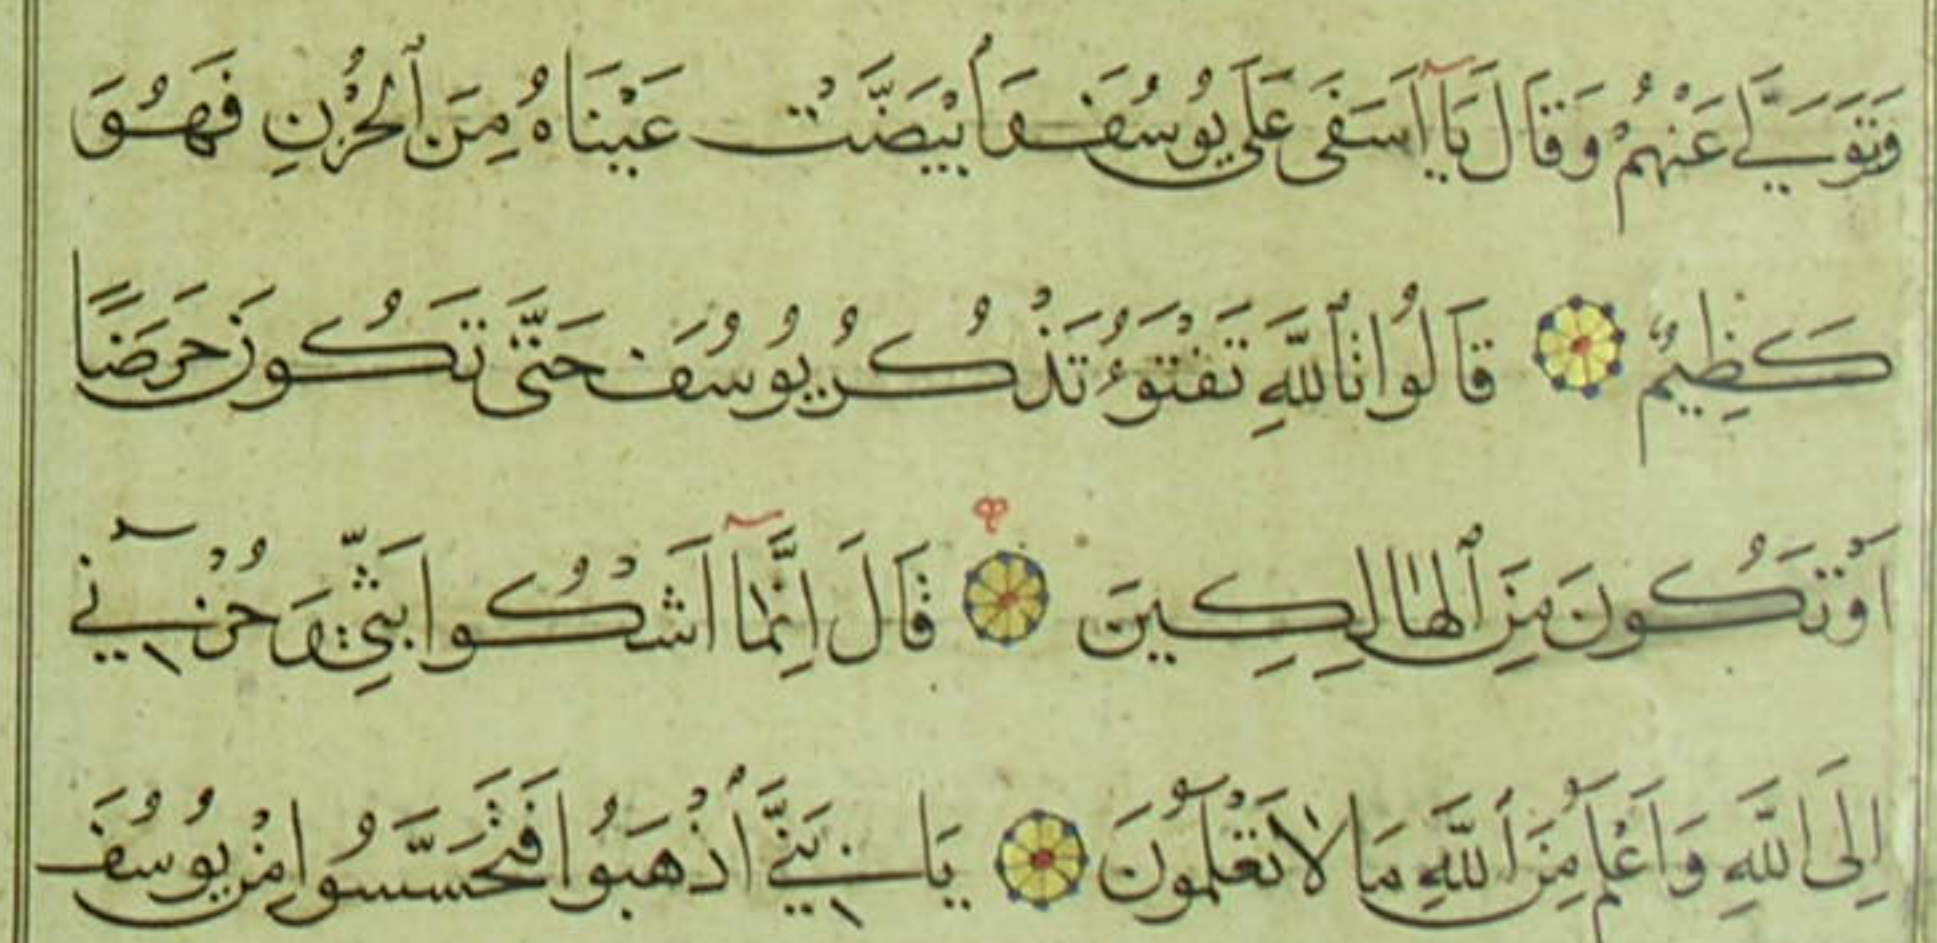 وَتَوَلَّى عَنْهُمْ وَقَالَ يَآ اَسَفَى عَلَى يُوسُفَ وَٱبْيَضَّتْ عَيْنَاهُ مِنَ ٱلْحُزْنِ فَهُوَ
كَظِيمٌ قَالُوا تَٱللَّهِ تَفْتَؤُ تَذْكُرُ يُوسُفَ حَتَّى تَكُونَ حَرَضًا
اَوْ تَكُونَ مِنَ ٱلْهَالِكِينَ قَالَ اِنَّمَآ اَشْكُوا بَثِّي وَحُزْنِيٓ
اِلَى اللَّهِ وَاَعْلَمُ مِنَ ٱللَّهِ مَا لَا تَعْلَمُونَ يَا بَنِيَّ ٱذْهَبُوا فَتَحَسَّسُوا مِنْ يُوسُفَ